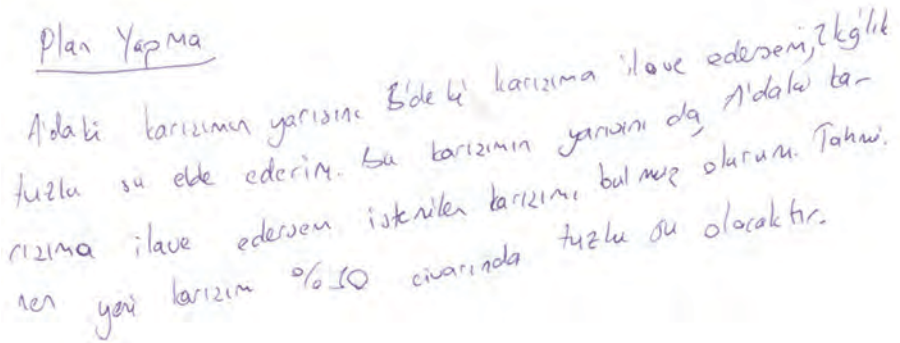 Plan Yapma
A'daki karızımın yarısını B'deki karızıma ilave edersem, 2kg'lık
tuzlu su elde ederim. Bu karızımın yarısını da, A'daki ka-
rızıma ilave edersem istenilen karızımı bulmuş olurum. Tahmi.
nen yeni karızım %50 civarında tuzlu su olacaktır.